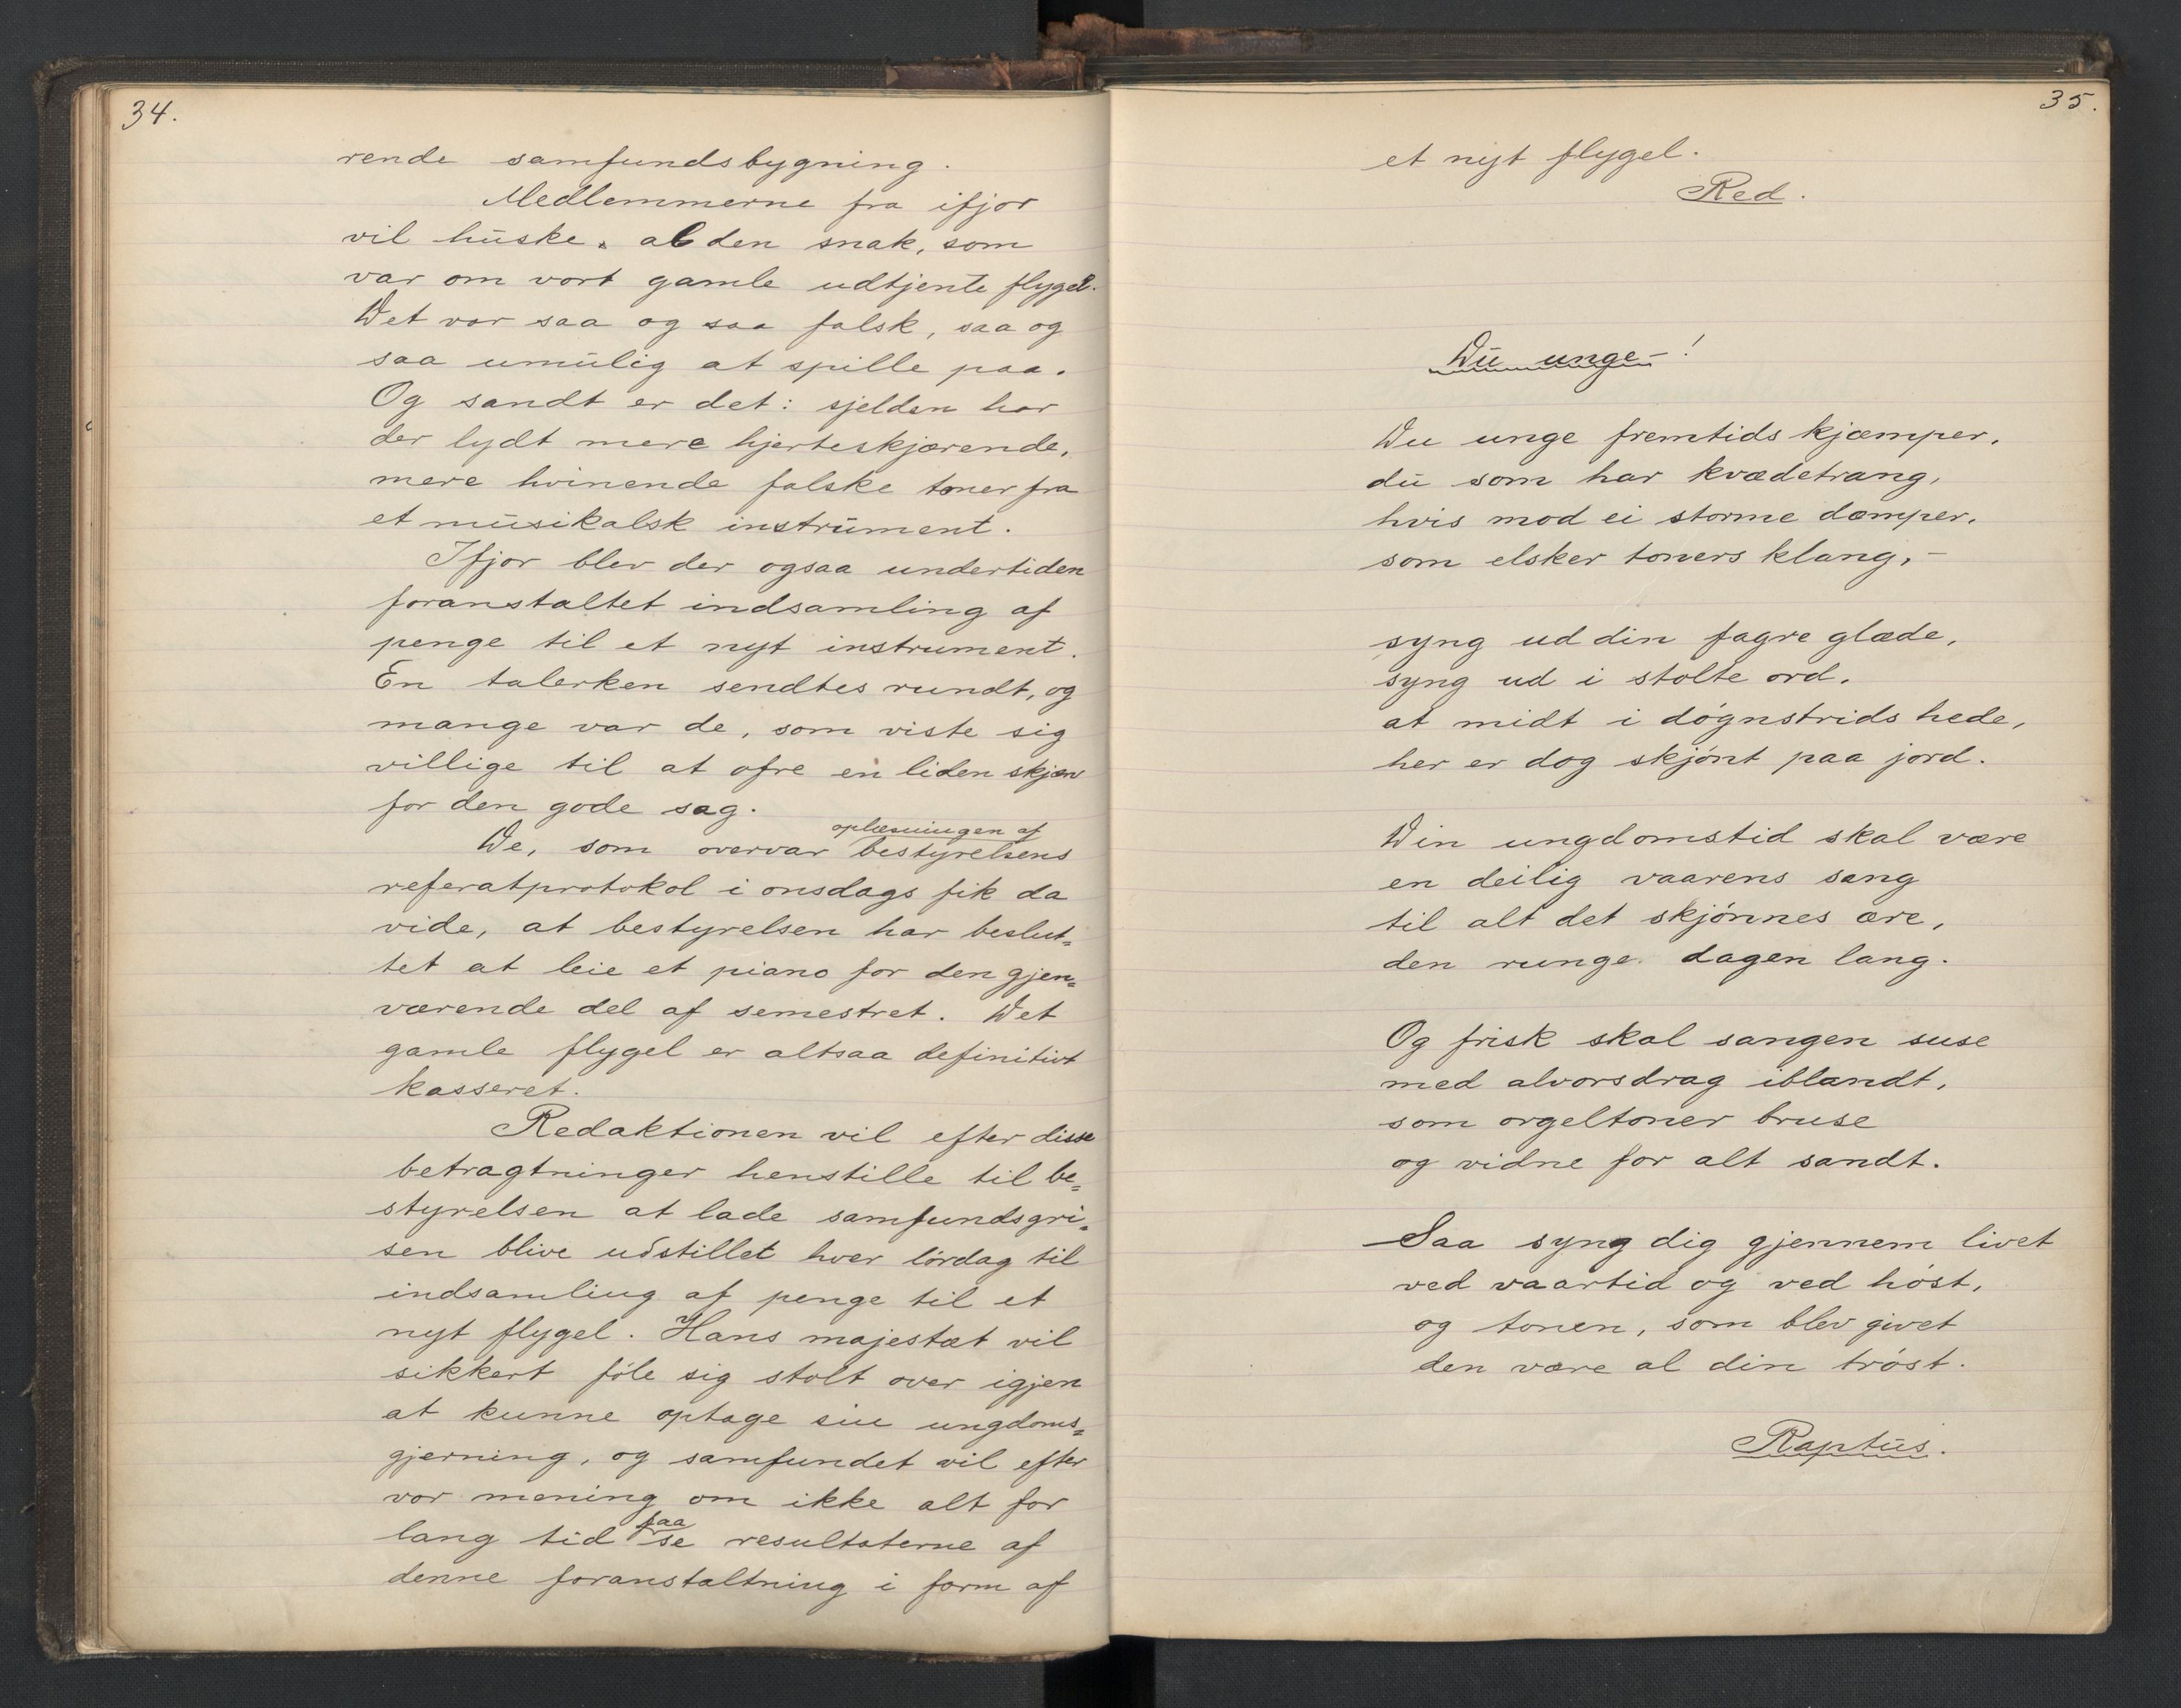 34.
rende samfundsbygning.
Medlemmerne fra ifjor
vil huske al den snak, som
var om vort gamle udtjente flygel.
Det var saa og saa falsk, saa og
saa umulig at spille paa.
Og sandt er det: sjelden har
der lydt mere hjerteskjærende,
mere hvinende falske toner fra
et musikalsk instrument.
Ifjor blev der ogsaa undertiden
foranstaltet indsamling af
penge til et nyt instrument.
En talerken sendtes rundt, og
mange var de, som viste sig
villige til at ofre en liden skjærv
for den gode sag.
De, som overvar oplæsningen af bestyrelsens
referatprotokol i onsdags fik da
vide, at bestyrelsen har beslut=
tet at leie et piano for den gjen=
værende del af semestret. Det
gamle flygel er altsaa definitivt
kasseret.
Redaktionen vil efter disse
betragtninger henstille til be=
styrelsen at lade samfundsgri=
sen blive udstillet hver lördag til
indsamling af penge til et
nyt flygel. Hans majestæt vil
sikkert föle sig stolt over igjen
at kunne optage sin ungdoms=
gjerning, og samfundet vil efter
vor mening om ikke alt for
lang tid faa se resultaterne af
denne foranstaltning i form af
35.
et nyt flygel.
Red.
Du unge-!
Du unge fremtids kjæmper,
du som har kvædetrang,
hvis mod ei storme dæmper,
som elsker toners klang, -
syng ud din fagre glæde,
syng ud i stolte ord,
at midt i dógnstrids hede,
her er dog skjónt paa jord.
Din ungdomstid skal være
en deilig vaarens sang
til alt det skjónnes ære,
den runge dagen lang.
Og frisk skal sangen suse
med alvorsdrag iblandt,
som orgeltoner bruse
og vidne for alt sandt.
Saa syng dig gjennem livet
ved vaartid og ved hóst,
og tonen, som blev givet
den være al din tróst.
Raptus.